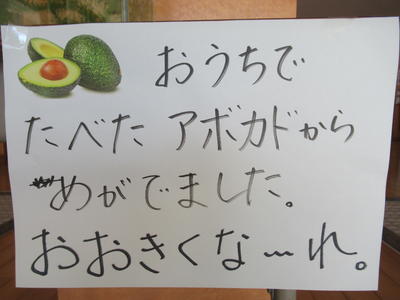 おうちで
たべたアボカドから
めがでました。
おおきくな〜れ。